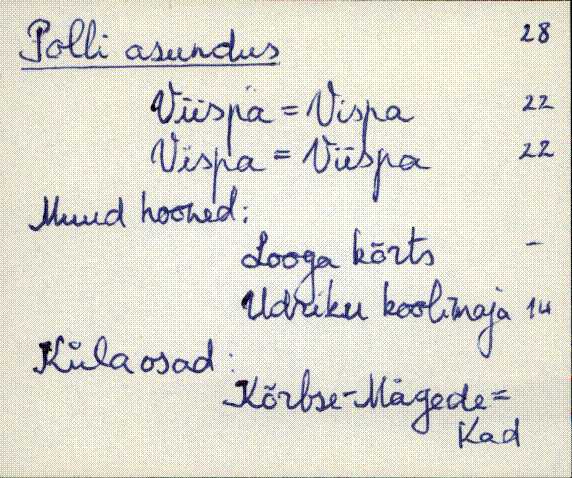 Polli asundus 28
Viispa = Vispa 22
Vispa = Viispa 22
Muud hooned:
Looga kõrts -
Udriku koolimaja 14
Küla osad:
Kõrbse-Mägede=
Kad